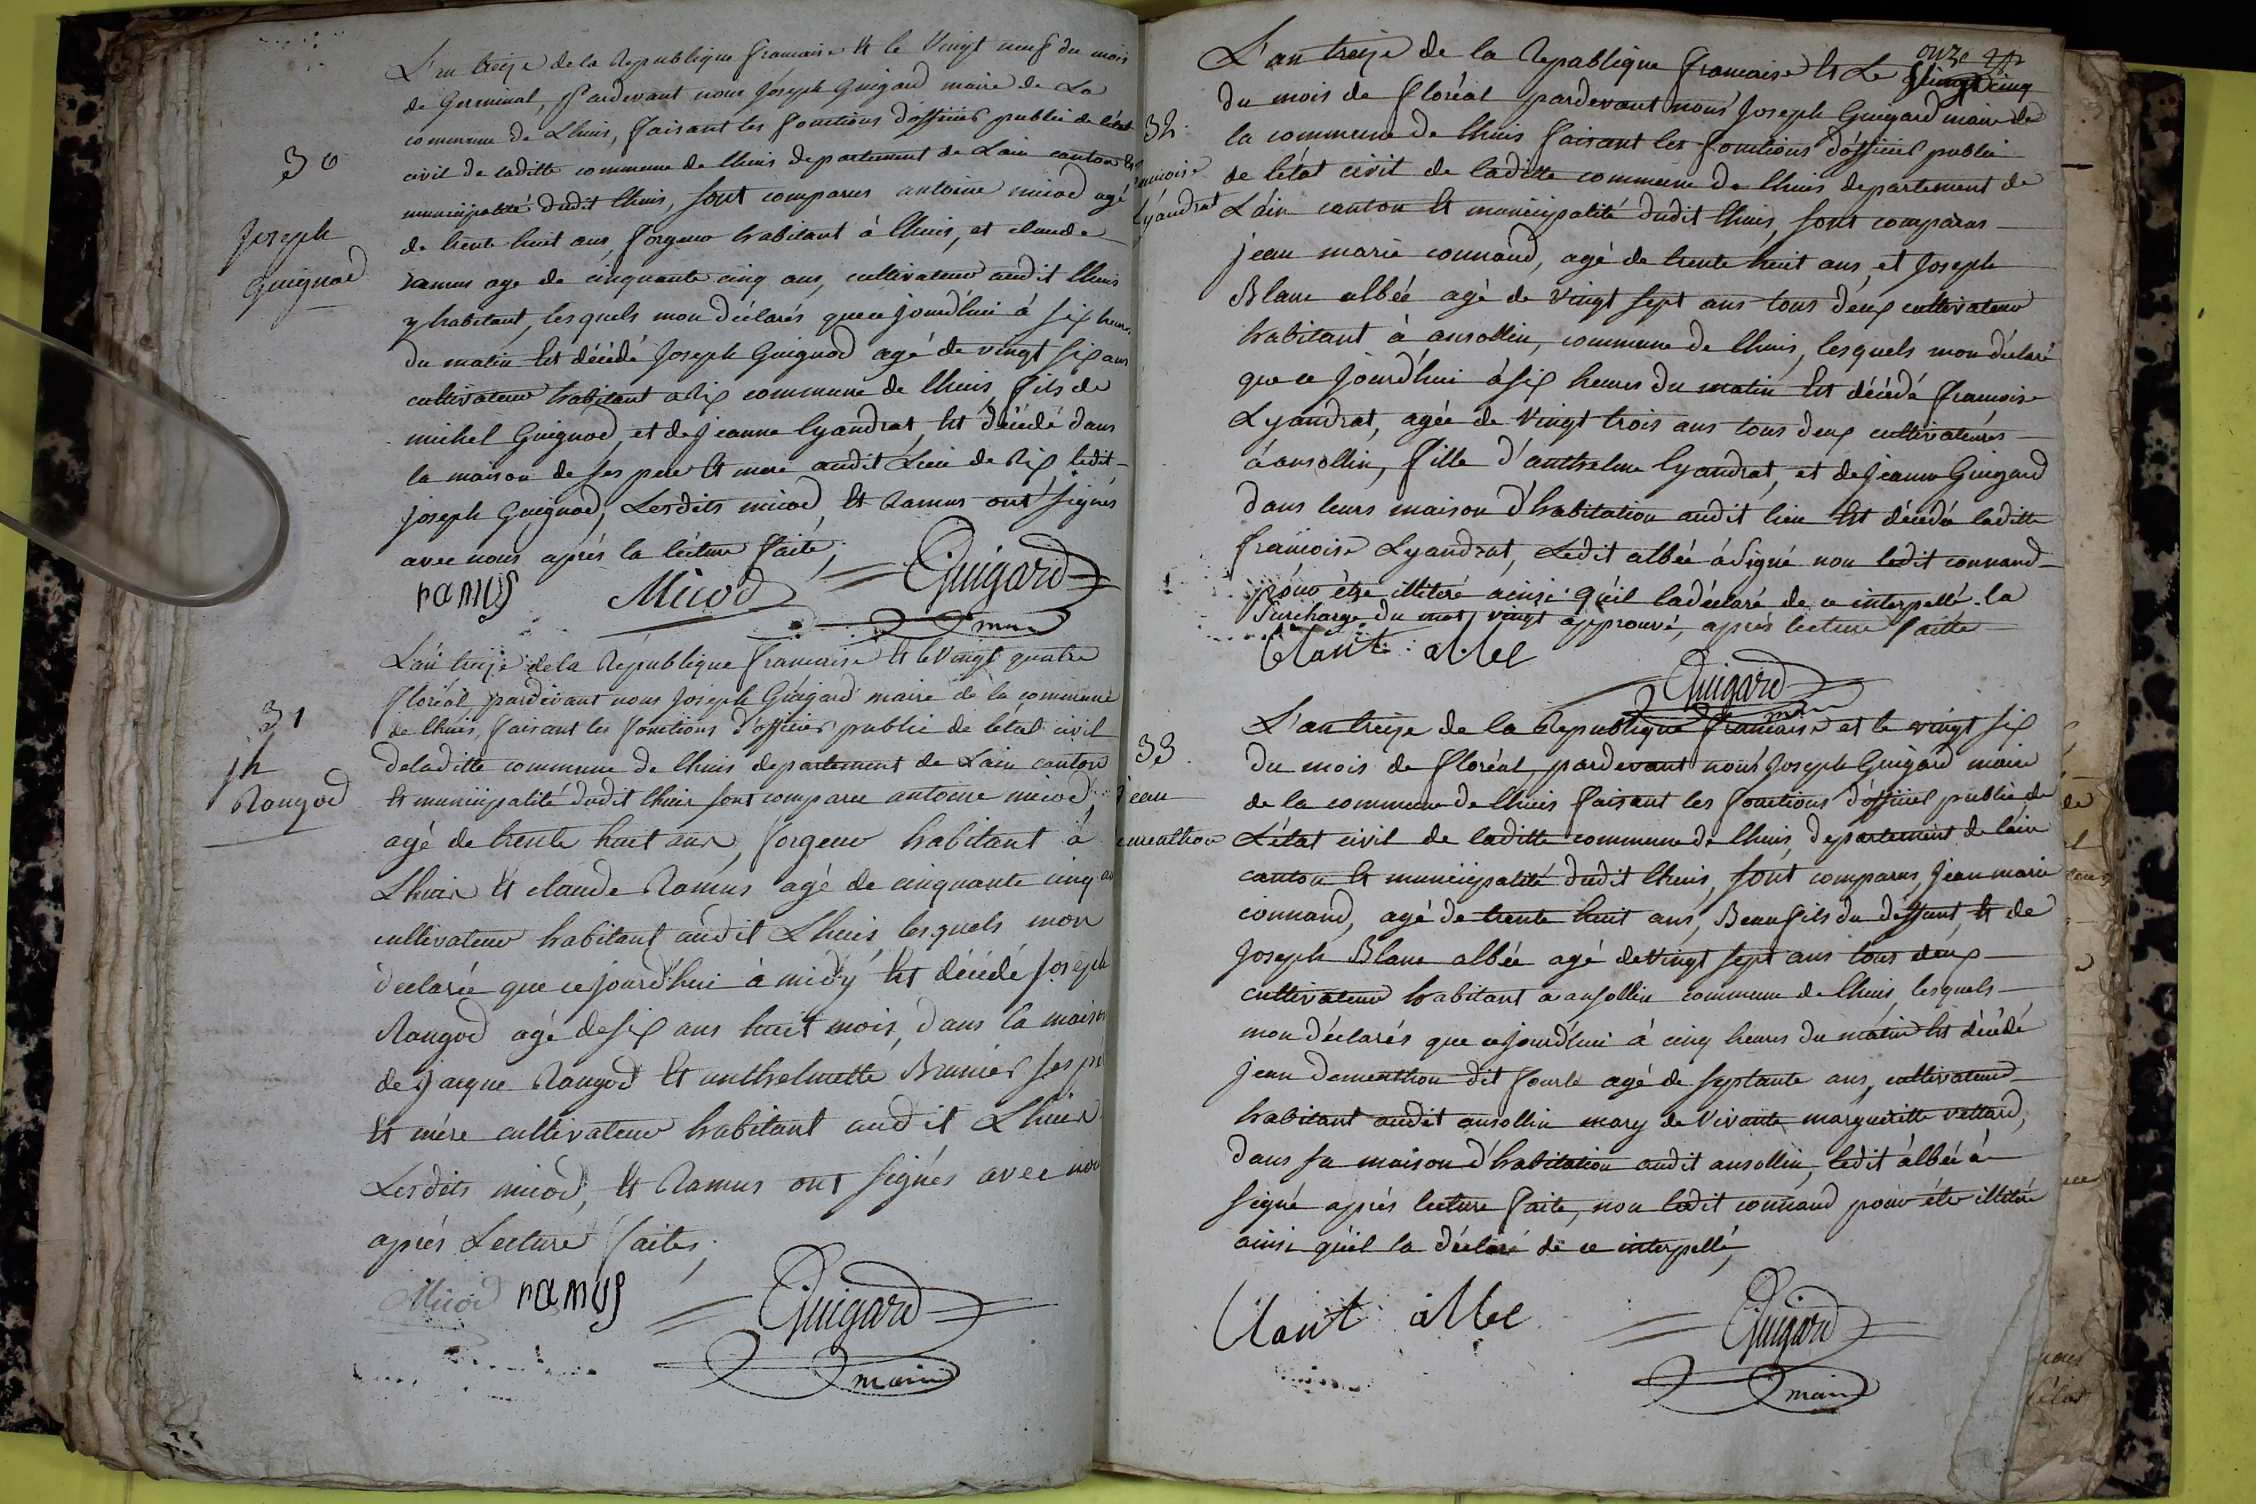 L'an treize de la Republique francaise Et le Vingt neuf du mois
de Germinal, Pardevant nous Joseph Guigard maire de La
commune de Lhuis, faisant les fonctions d'officier public de l'état
civil de laditte commune de lhuis departement de Lain canton Et
municipalité dudit lhuis, sont comparus antoine micod agé
30
Joseph
Guignod
de trente huit ans forgeur habitant à lhuis, et claude
ramus age de cinquante cinq ans, cultivateur audit lhuis
y habitant, lesquels mon déclarés que ce jourd'hui à six heures
du matin Est décédé Joseph Guignod agé de vingt six ans
cultivateur habitant a Rix commune de lhuis, fils de
michel Guignod, et de jeanne lyandrat, Est décédé dans
la maison de ses pere Et mere audit Lieu de Rix ledit
joseph Guignod, Lesdits micod, Et Ramus ont signés
avec nous aprés la lécture faite,
ramus Micod Guigard
maire
L'an treize de la République francaise Et le Vingt quatre
floréal, pardevant nous Joseph Guigard maire de la commune
de lhuis, faisant les fonctions d'officier public de létat civil
31
jh
Rougod
deladitte commune de lhuis departement de Lain canton
Et municipalité dudit lhuis sont comparu antoine micod,
agé de trente huit ans, forgeur habitant à
Lhuis Et claude Ramus agé de cinquante cinq an
cultivateur habitant audit Lhuis, lesquels mon
déclarée que ce jourd'hui à midy Est décédé Joseph
Rougod agé de six ans huit mois, dans la maison
de jacque Rougod Et anthelmette Brunier ses pé
Et mére cultivateur habitant audit Lhuis
Lesdits micod, Et Ramus ont signés avec nou
aprés Lecture faites,
Micod ramus Guigard
maire
L'an treize de la Republique francaise Et Le onze vingt cinq
du mois de floréal pardevant nous Joseph Guigard maire de
32
francoise
Lyandrat
la commune de lhuis faisant les fonctions d'officier public
de létat civil de laditte commune de lhuis departement de
L'ain canton Et municipalité dudit lhuis, sont comparus
jean marie connand, agé de trente huit ans, et Joseph
Blanc albée agé de vingt sept ans tous deux cultivateur
habitant à ansollin, commune de lhuis, lesquels mon déclaré
que ce jourd'hui à six heures du matin Est décédé francoise
Lyandrat, agée de Vingt trois ans tous deux cultivateurs
à ansollin, fille d'anthelme lyandrat, et de jeanne Guigard
dans leurs maison d'habitation audit lieu Est décédé laditte
francoise Lyandrat, Ledit albée à signé non ledit connand
pour étre illitéré ainsi qu'il la déclaré de ce interpellé. la
surcharge du mot vingt approuvé, aprés lecture faitte
Guigard
maire
L'an treize de la Republique francaise et le vingt six
du mois de floréal, pardevant nous Joseph Guigard maire
33
jean
dementhon
de la commune de lhuis faisant les fonctions d'officier public de
L'état civil de laditte commune de lhuis, departement de lain
canton Et municipalité dudit lhuis, sont comparus, jean marie
connand, agé de trente huit ans, Beaufils du déffunt, Et de
Joseph Blanc albée agé de vingt sept ans tous deux
cultivateur habitant a ansollin commune de lhuis, lesquels
mon déclarés que ce jourd'hui à cinq heures du matin Est décédé
jean dementhon dit fourle agé de septante ans, cultivateur
habitant audit ansollin mary de Vivante margueritte vettard,
dans sa maison d'habitation audit ansollin, ledit albée à
signé aprés lecture faite, non ledit connand pour étre illitéré
ainsi qu'il la déclaré de ce interpellé,
Guigard
maire